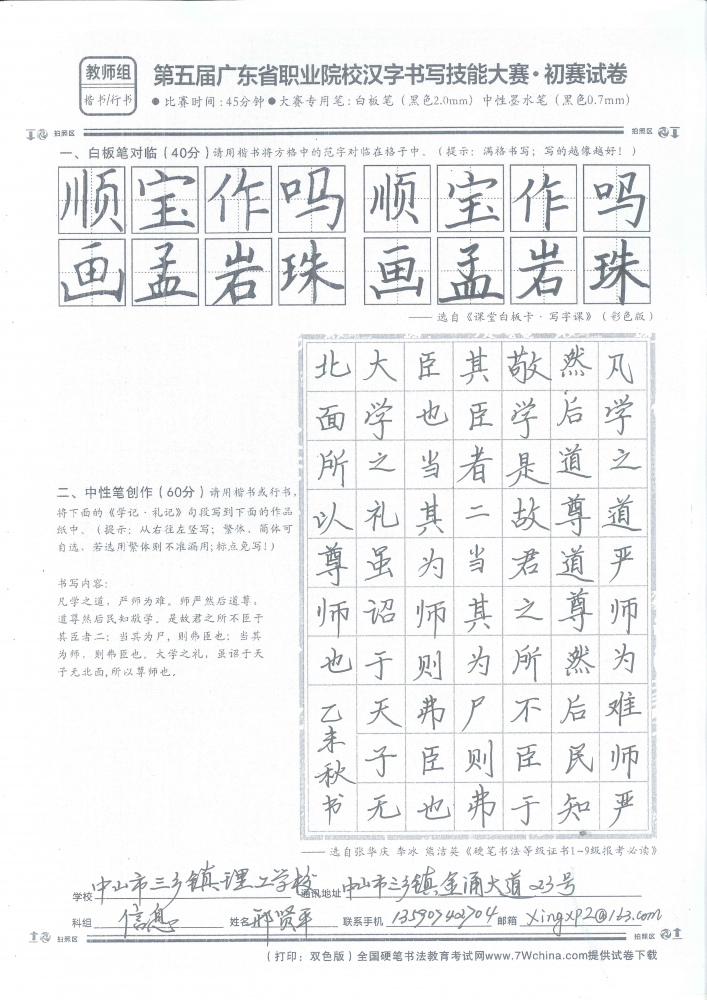 教师组
楷书/行书
第五届广东省职业院校汉字书写技能大赛·初赛试卷
●比赛时间:45分钟●大赛专用笔:白板笔(黑色2.0mm) 中性墨水笔(黑色0.7mm)
拍照区
拍照区
一、白板笔对临(40分)请用楷书将方格中的范字对临在格子中。(提示:满格书写;写的越像越好!)
顺宝作吗 顺宝作吗
画孟岩珠 画孟岩珠
—— 选自《课堂白板卡·写字课》(彩色版)
二、中性笔创作(60分)请用楷书或行书,
将下面的《学记·礼记》句段写到下面的作品
纸中。(提示:从右往左竖写;繁体、简体可
自选,若选用繁体则不准漏用;标点免写!)
书写内容:
凡学之道,严师为难。师严然后道尊,
道尊然后民知敬学。是故君之所不臣于
其臣者二:当其为尸,则弗臣也;当其
为师,则弗臣也。大学之礼,虽诏于天
子无北面,所以尊师也。
凡学之道严师为难师严
然后道尊道尊然后民知
敬学是故君之所不臣于
其臣者二当其为尸则弗
臣也当其为师则弗臣也
大学之礼虽诏于天子无
北面所以尊师也
乙未秋书
—— 选自张华庆 李冰 熊洁英《硬笔书法等级证书1-9级报考必读》
学校 中山市三乡镇理工学校 通讯地址 中山市三乡镇金涌大道23号
科组 信息 姓名 邢贤平 联系手机 13590742704 邮箱 xingxp2@163.com
拍照区
拍照区
(打印:双色版)全国硬笔书法教育考试网www.7Wchina.com提供试卷下载